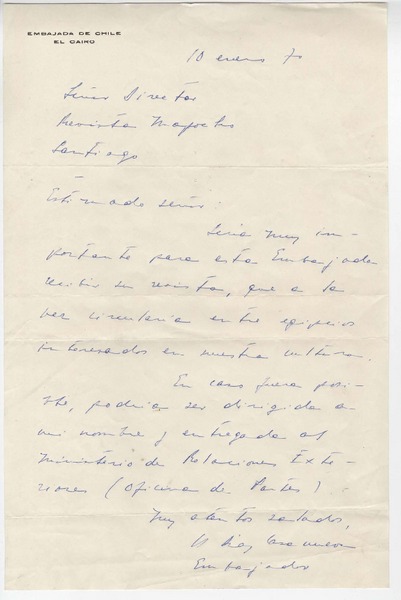 EMBAJADA DE CHILE
EL CAIRO
10 enero 70
Señor Director
Revista Mapocho
Santiago
Estimado señor:
Sería muy im-
portante para esta Embajada
recibir su revista, que a la
vez circularia entre egipcios
interesados en nuestra cultura.
En caso fuera posi-
ble, podria ser dirigida a
mi nombre y entregada al
Ministerio de Relaciones Exte-
riores (Oficina de Partes)
Muy atentos saludos,
Embajador